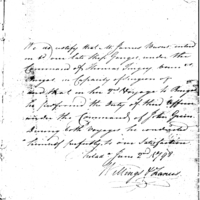 We do certify that Mr James
on our late Ship Ganges under the
Command of Thomas Tingey
in Capacity of
and that in her 2nd Voyage to Bengal
he performed the duty of third Officer
under the Command of John Green
During both Voyages he conducted
himself perfectly to our Satisfaction
June 2nd 1798
Willings & Francis